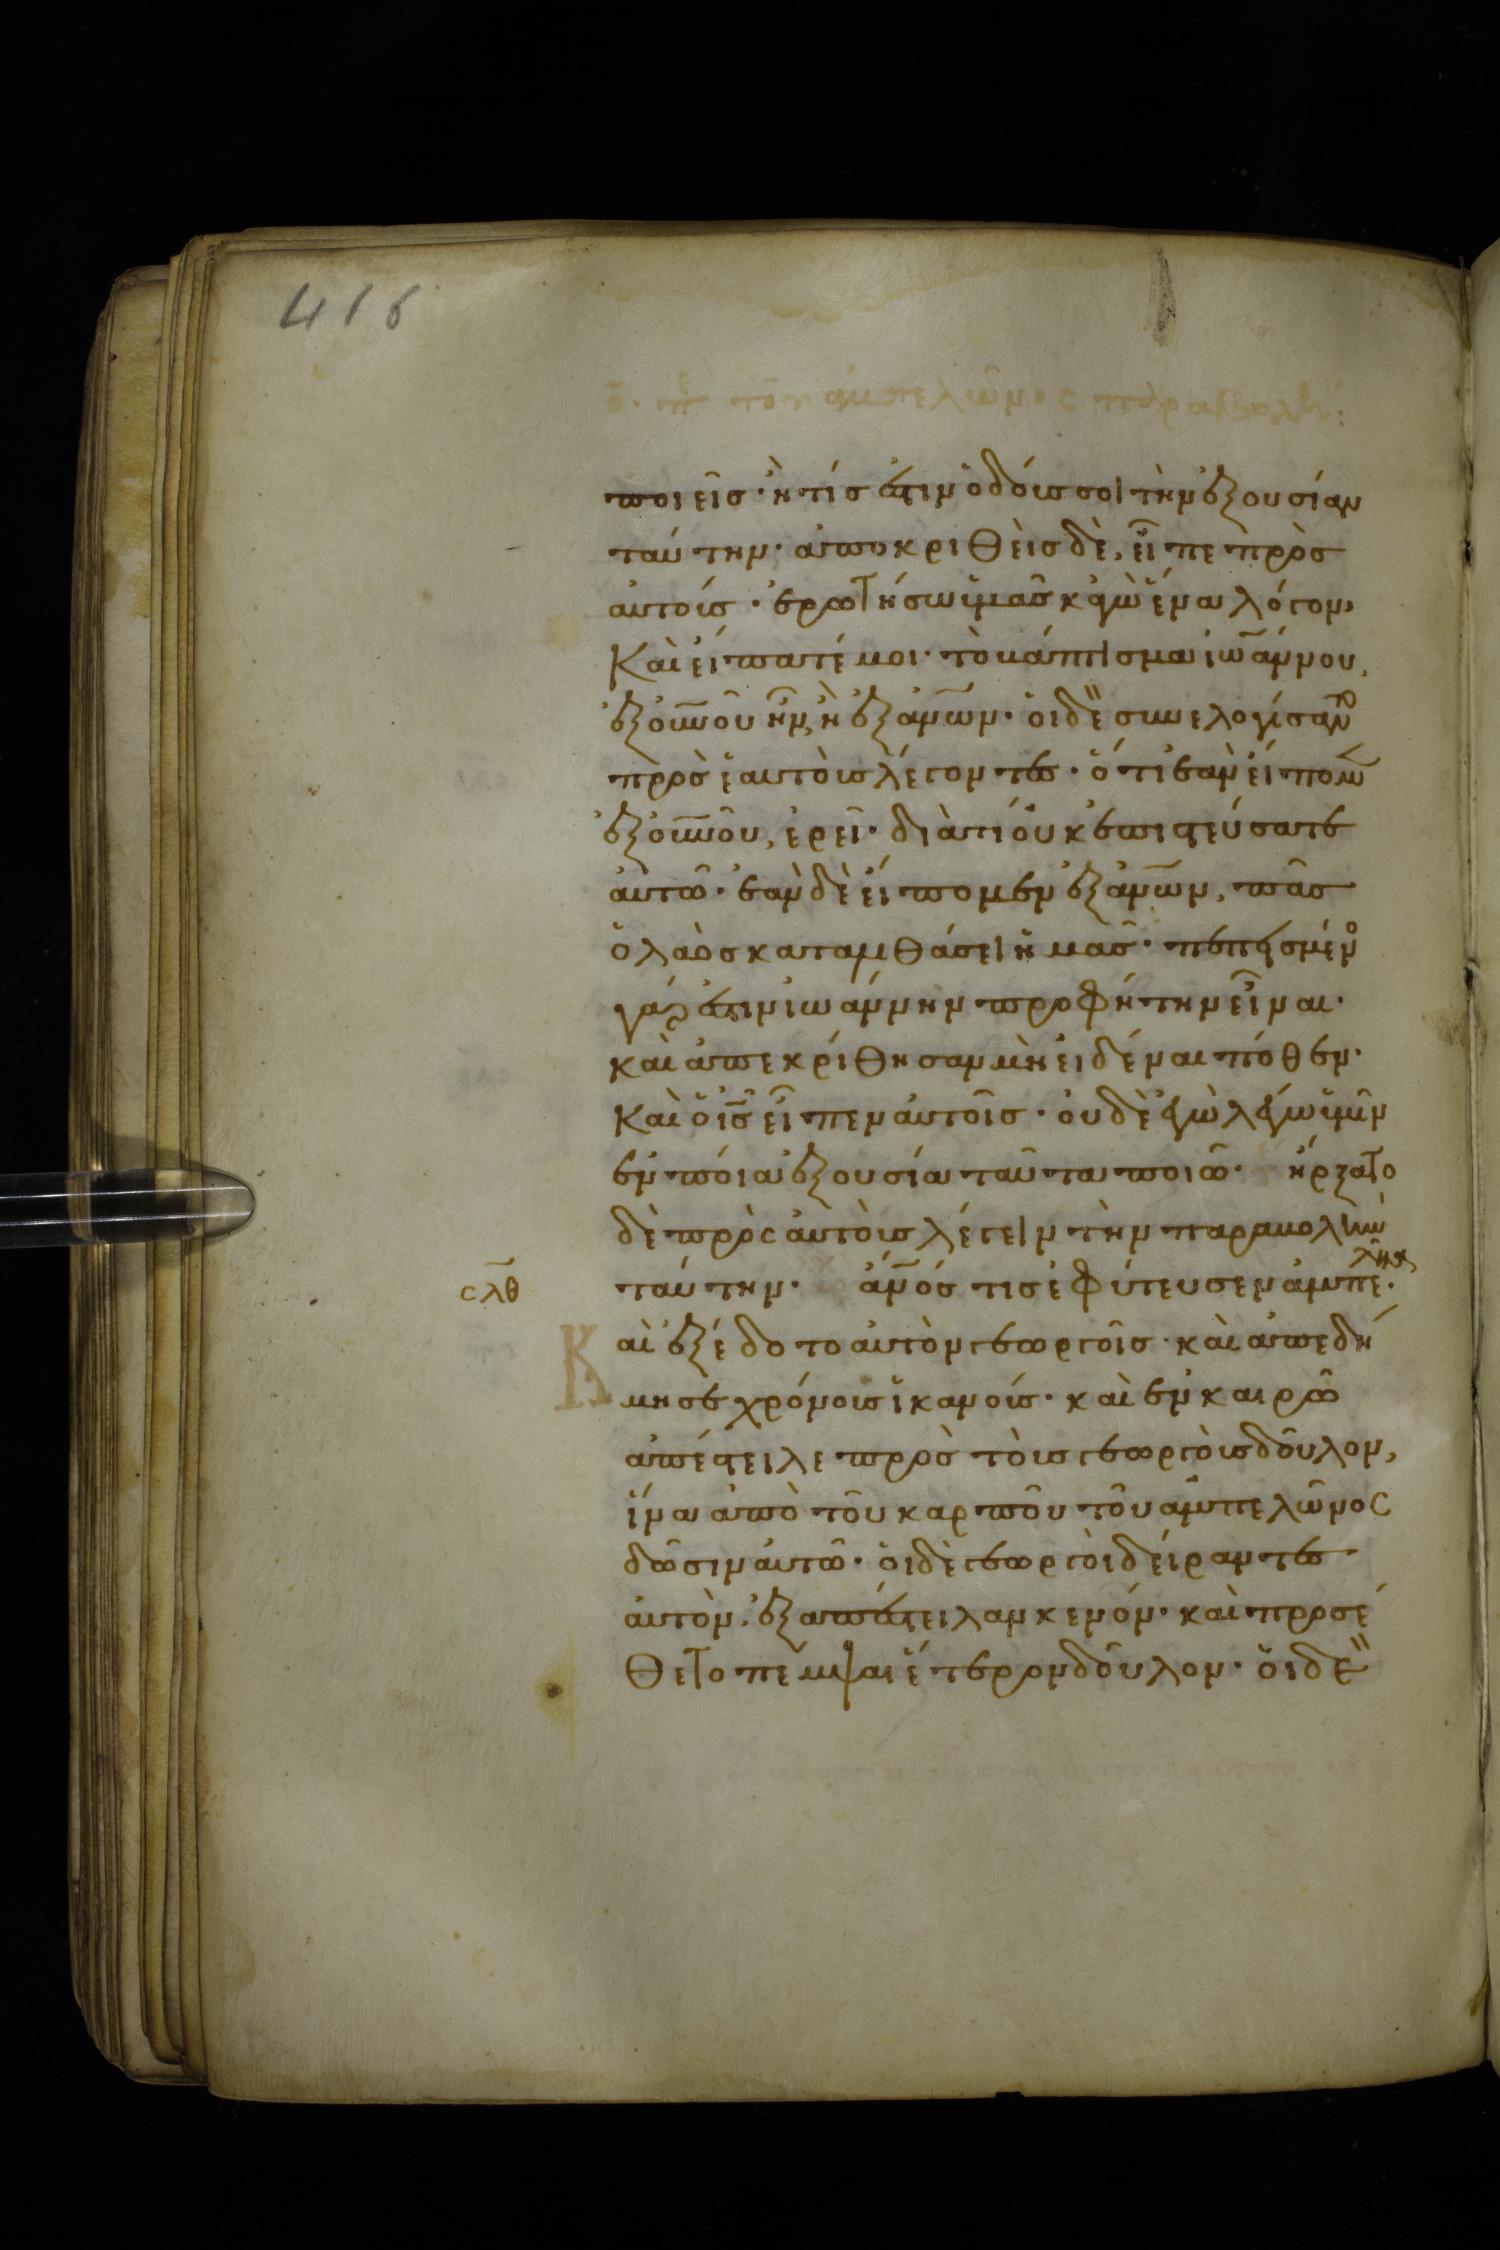 416
ο̅· π̅ε τοῦ ἀμπελῶνος παραβολή:
ποιεῖσ· ἢ τίσ ἐστιν ὁ δούσ σοι τὴν ἐξουσίαν
ταύτην· ἀποκριθεὶσ δὲ, εἶπε πρὸσ
αὐτούσ· ἐρωτήσω ὑμᾶσ κἀγὼ ἕνα λόγον,
Καὶ εἴπατέ μοι· τὸ βάπτισμα ἰω̅άννου,
ἐξ οὐ̅νοῦ ἦν, ἢ ἐξ ἀν̅ων· ὁι δὲ συνελογίσαντο
πρὸσ ἑαυτοὺσ λέγοντεσ· ὅτι ἐὰν εἴπωμ̅
ἐξ οὐ̅νοῦ, ἐρεῖ· διὰ τί οὐκ ἐπιστεύσατε
αὐτῶ· ἐὰν δὲ εἴπομεν ἐξ ἀν̅ων, πᾶσ
ὁ λαὸσ καταλιθάσει ἡμᾶσ· πεπεισμένο
γάρ ἐστιν ἰωάννην προφήτην εἶναι·
καὶ ἀπεκρίθησαν μὴ εἰδέναι πόθεν·
Καὶ ὁ ἰ̅σ εἶπεν αὐτοῖσ· οὐδὲ ἐγὼ λέγω ὑμῖν
ἐν ποία ἐξουσία ταῦτα ποιῶ· ἤρξατο
δὲ πρὸς αὐτοὺσ λέγειν τὴν παραβολὴν
ταύτην· ἀν̅όσ τισ ἐφύτευσεν ἀμπε·
λῶνα
σλθ
Καὶ ἐξέδοτο αὐτὸν γεωργοῖσ· καὶ ἀπεδή
μησε χρόνουσ ἱκανούσ· καὶ ἐν καιρῶ
ἀπέστειλε πρὸσ τοὺσ γεωργοὺσ δοῦλον,
ἵνα ἀπὸ τοῦ καρποῦ τοῦ ἀμπελῶνος
δῶσιν αὐτῶ· ὁι δὲ γεωργοὶ δείραντεσ
αὐτὸν, ἐξαπέστειλαν κενόν· καὶ προσέ
θετο πέμψαι ἕτερον δοῦλον· ὁι δὲ